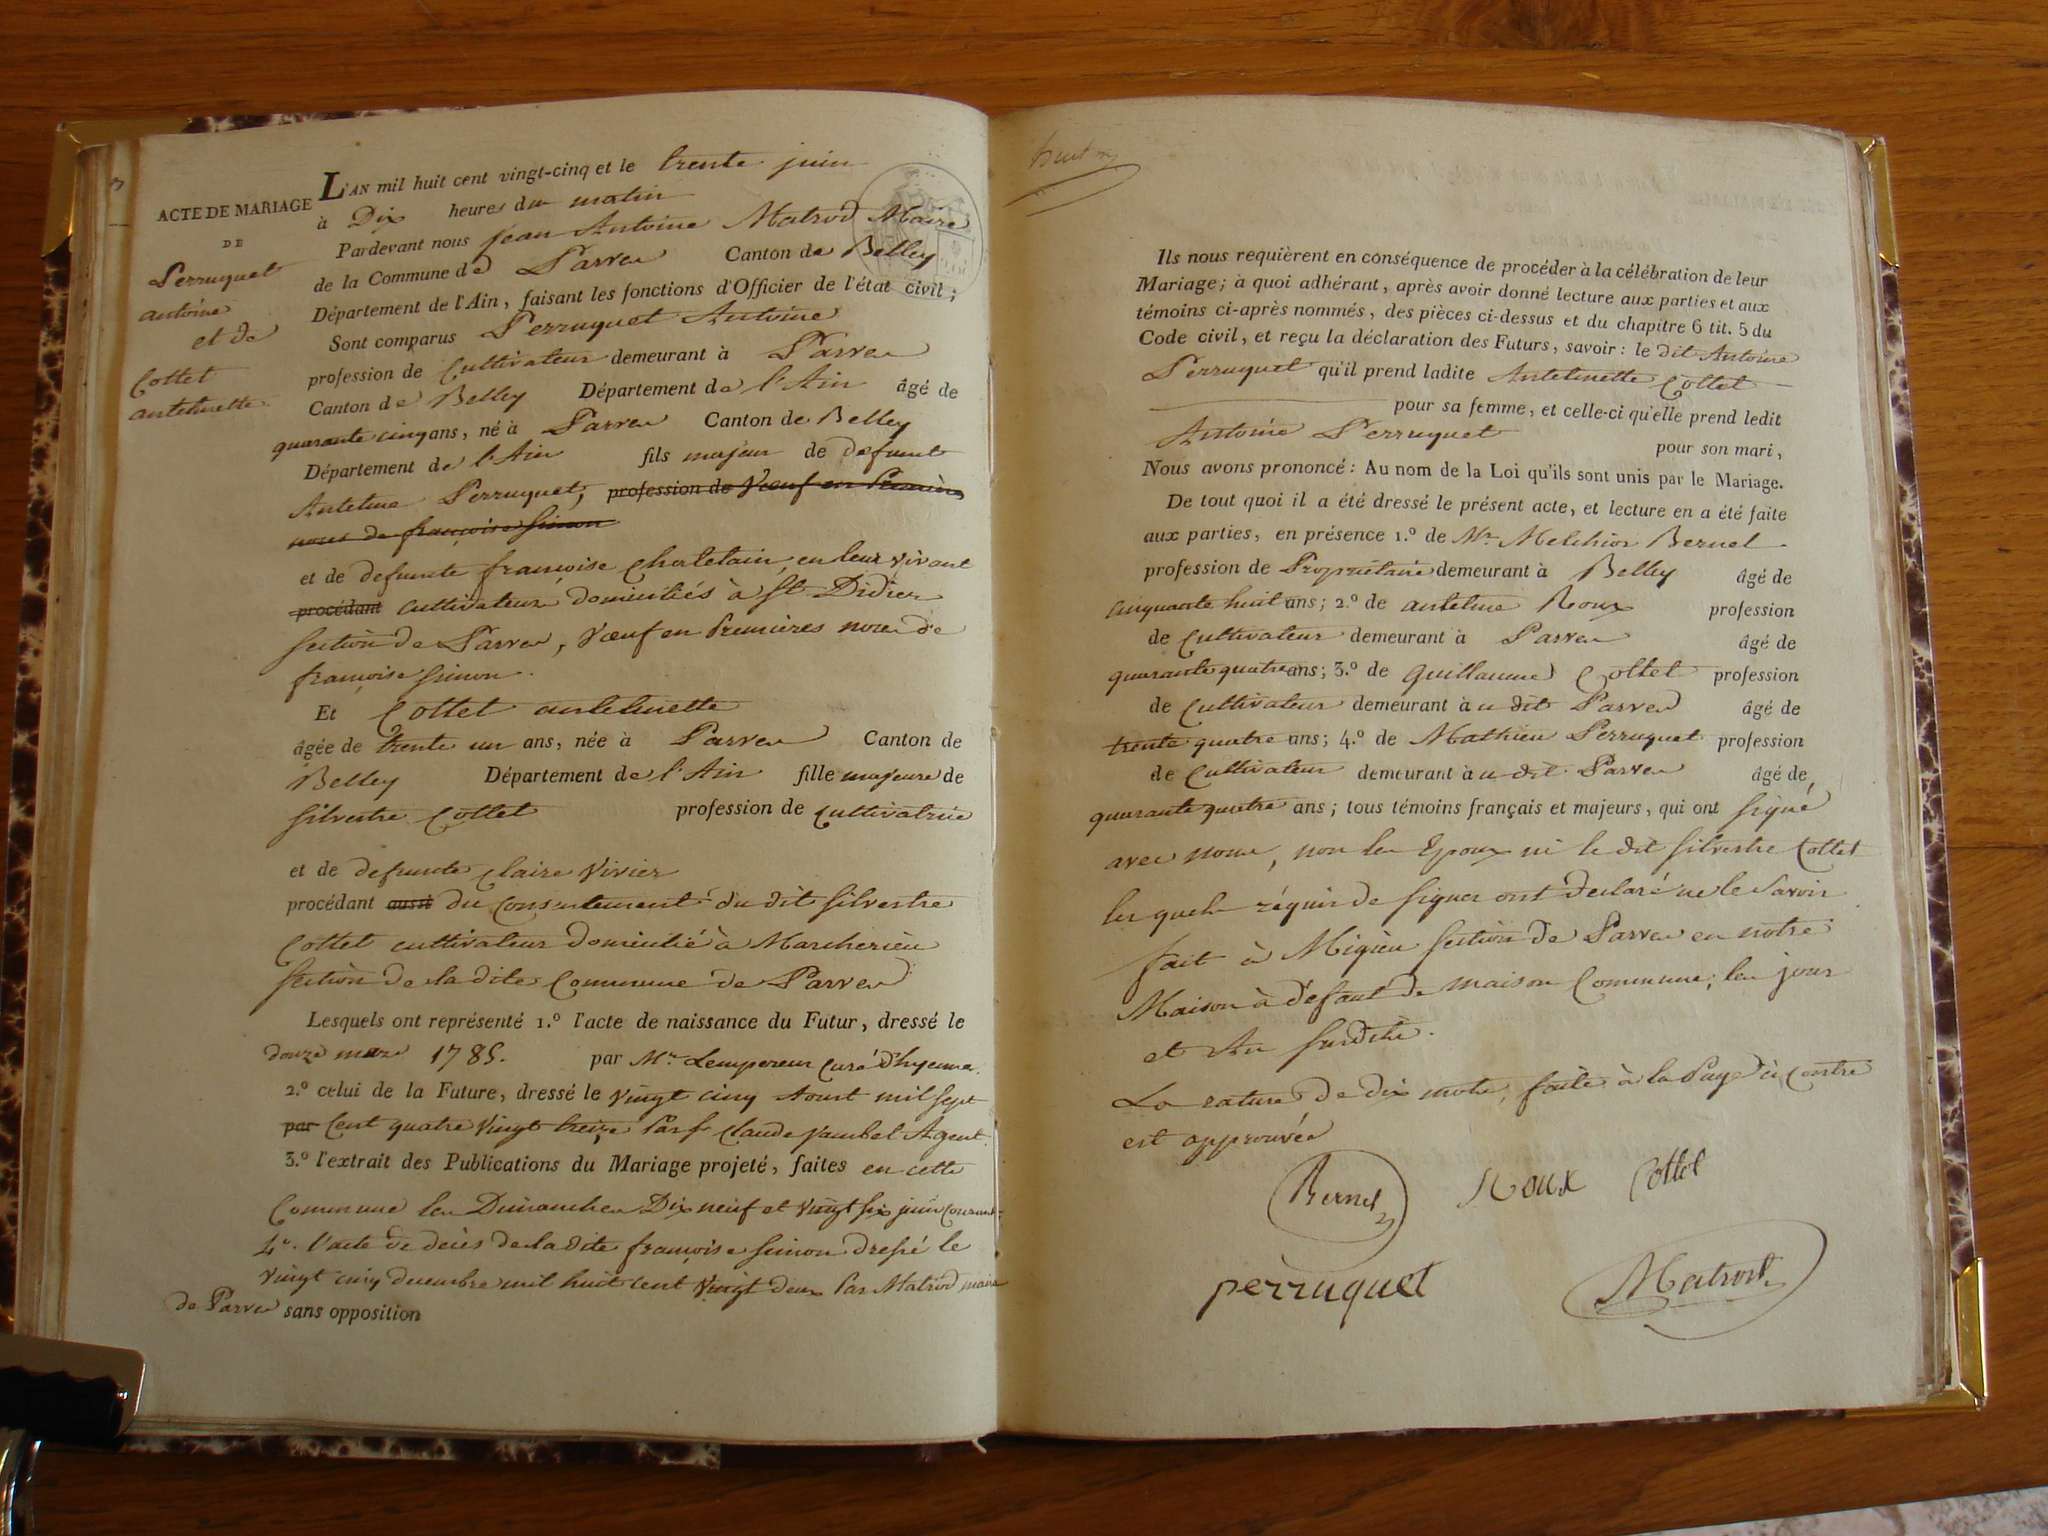 3
ACTE DE MARIAGE
DE
Perruquet
antoine
et de
Cottet
anthelmette
L'AN mil huit cent vingt-cinq et le trente juin
à Dix heures du matin
Pardevant nous Jean Antoine Matrod Maire
de la Commune de Parves Canton de Belley
Département de l'Ain, faisant les fonctions d'Officier de l'état civil;
Sont comparus Perruquet Antoine
profession de Cultivateur demeurant à Parves
Canton de Belley Département de l'Ain âgé de
quarante cinq ans, né à Parves Canton de Belley
Département de l'Ain fils majeur de defunt
Antelme Perruquet, profession de Vœuf en Premières
noces de françoise Simon
et de defunte françoise Chatelain, en leur vivant
procédant cultivateurs domiciliés à St. Didier
section de Parves, Vœuf en Premières noces de
françoise Simon.
Et Cottet antelmette
âgée de trente un ans, née à Parves Canton de
Belley Département de l'Ain fille majeure de
Silvestre Cottet profession de Cultivatrice
et de defunte Claire Vivier
procédant aussi du Consentement du dit Silvestre
Cottet cultivateur domicilié à Marcherieu
section de la dite Commune de Parves
Lesquels ont représenté 1.º l'acte de naissance du Futur, dressé le
douze mars 1785. par Mr. Lempereur Curé d'hyenne.
2.º celui de la Future, dressé le Vingt cinq Aoust mil sept
par Cent quatre Vingt treize Par Claude Vambel Agent.
3.º l'extrait des Publications du Mariage projeté, faites en cette
Commune les Dimanches Dix neuf et Vingt six juin Courant;
4º. l'acte de décès de la dite françoise Simon dressé le
Vingt cinq decembre mil huit cent Vingt deux Par Matrod maire
de Parves sans opposition
Ils nous requièrent en conséquence de procéder à la célébration de leur
Mariage; à quoi adhérant, après avoir donné lecture aux parties et aux
témoins ci-après nommés, des pièces ci-dessus et du chapitre 6 tit. 5 du
Code civil, et reçu la déclaration des Futurs, savoir: le dit Antoine
Perruquet qu'il prend ladite Antelmette Cottet
pour sa femme, et celle-ci qu'elle prend ledit
Antoine Perruquet pour son mari,
Nous avons prononcé: Au nom de la Loi qu'ils sont unis par le Mariage.
De tout quoi il a été dressé le présent acte, et lecture en a été faite
aux parties, en présence 1.º de Mr. Melchior Bernel
profession de Propriétaire demeurant à Belley âgé de
cinquante huit ans; 2.º de antelme Roux profession
de Cultivateur demeurant à Parves âgé de
quarante quatre ans; 3.º de Guillaume Cottet profession
de Cultivateur demeurant à u dit Parves âgé de
trente quatre ans; 4.º de Mathieu Perruquet profession
de Cultivateur demeurant à u dit Parves âgé de
quarante quatre ans; tous témoins français et majeurs, qui ont signé
avec nous, non les Epoux ni le dit Silvestre Cottet
les quels réquis de signer ont déclaré ne le Savoir
fait à Migieu section de Parves en notre
Maison à défaut de maison Commune; les jour
et An susdits.
La rature de dix mots, faite à la Page ci Contre
est approuvée
Bernel Roux Cottet
perruquet Matrod